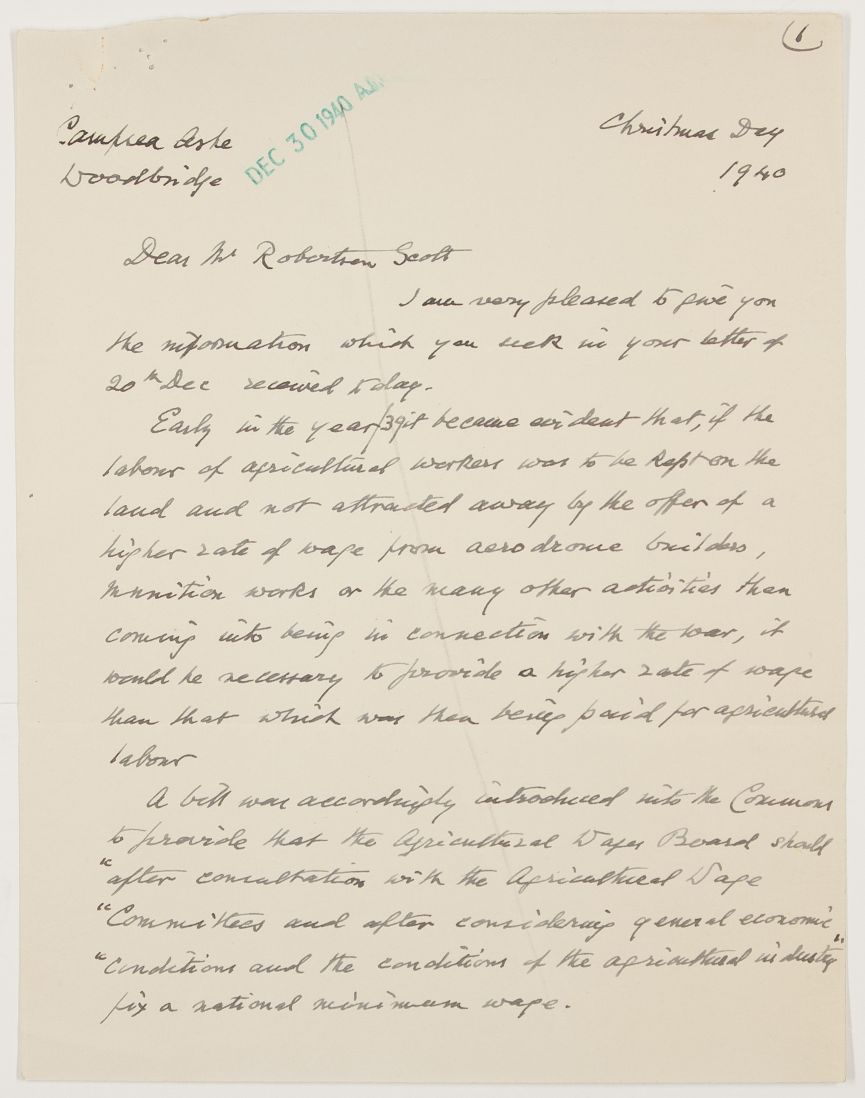 1
Campsea Ashe
DEC 30 1940 AM
Christmas Day
Woodbridge
1940
Dear Mr Robertson Scott
I am very pleased to give you
the information which you seek in your letter of
20th Dec received today.
Early in the year/39 it became evident that, if the
labour of agricultural workers was to be kept on the
land and not attracted away by the offer of a
higher rate of wage from aerodrome builders,
munition works or the many other activities then
coming into being in connection with the war, it
would be necessary to provide a higher rate of wage
than that which was then being paid for agricultural
labour
A bill was accordingly introduced into the Commons
to provide that the Agricultural Wages Board should
"after consultation with the Agricultural Wage
"Committees and after considering general economic
"conditions and the conditions of the agricultural industry"
fix a national minimum wage.